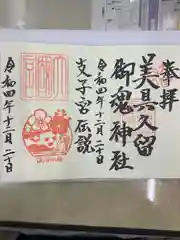 奉拝
美具久留
御魂神社
令和四年十二月二十日
支子宮伝説
令和四年十二月二十日